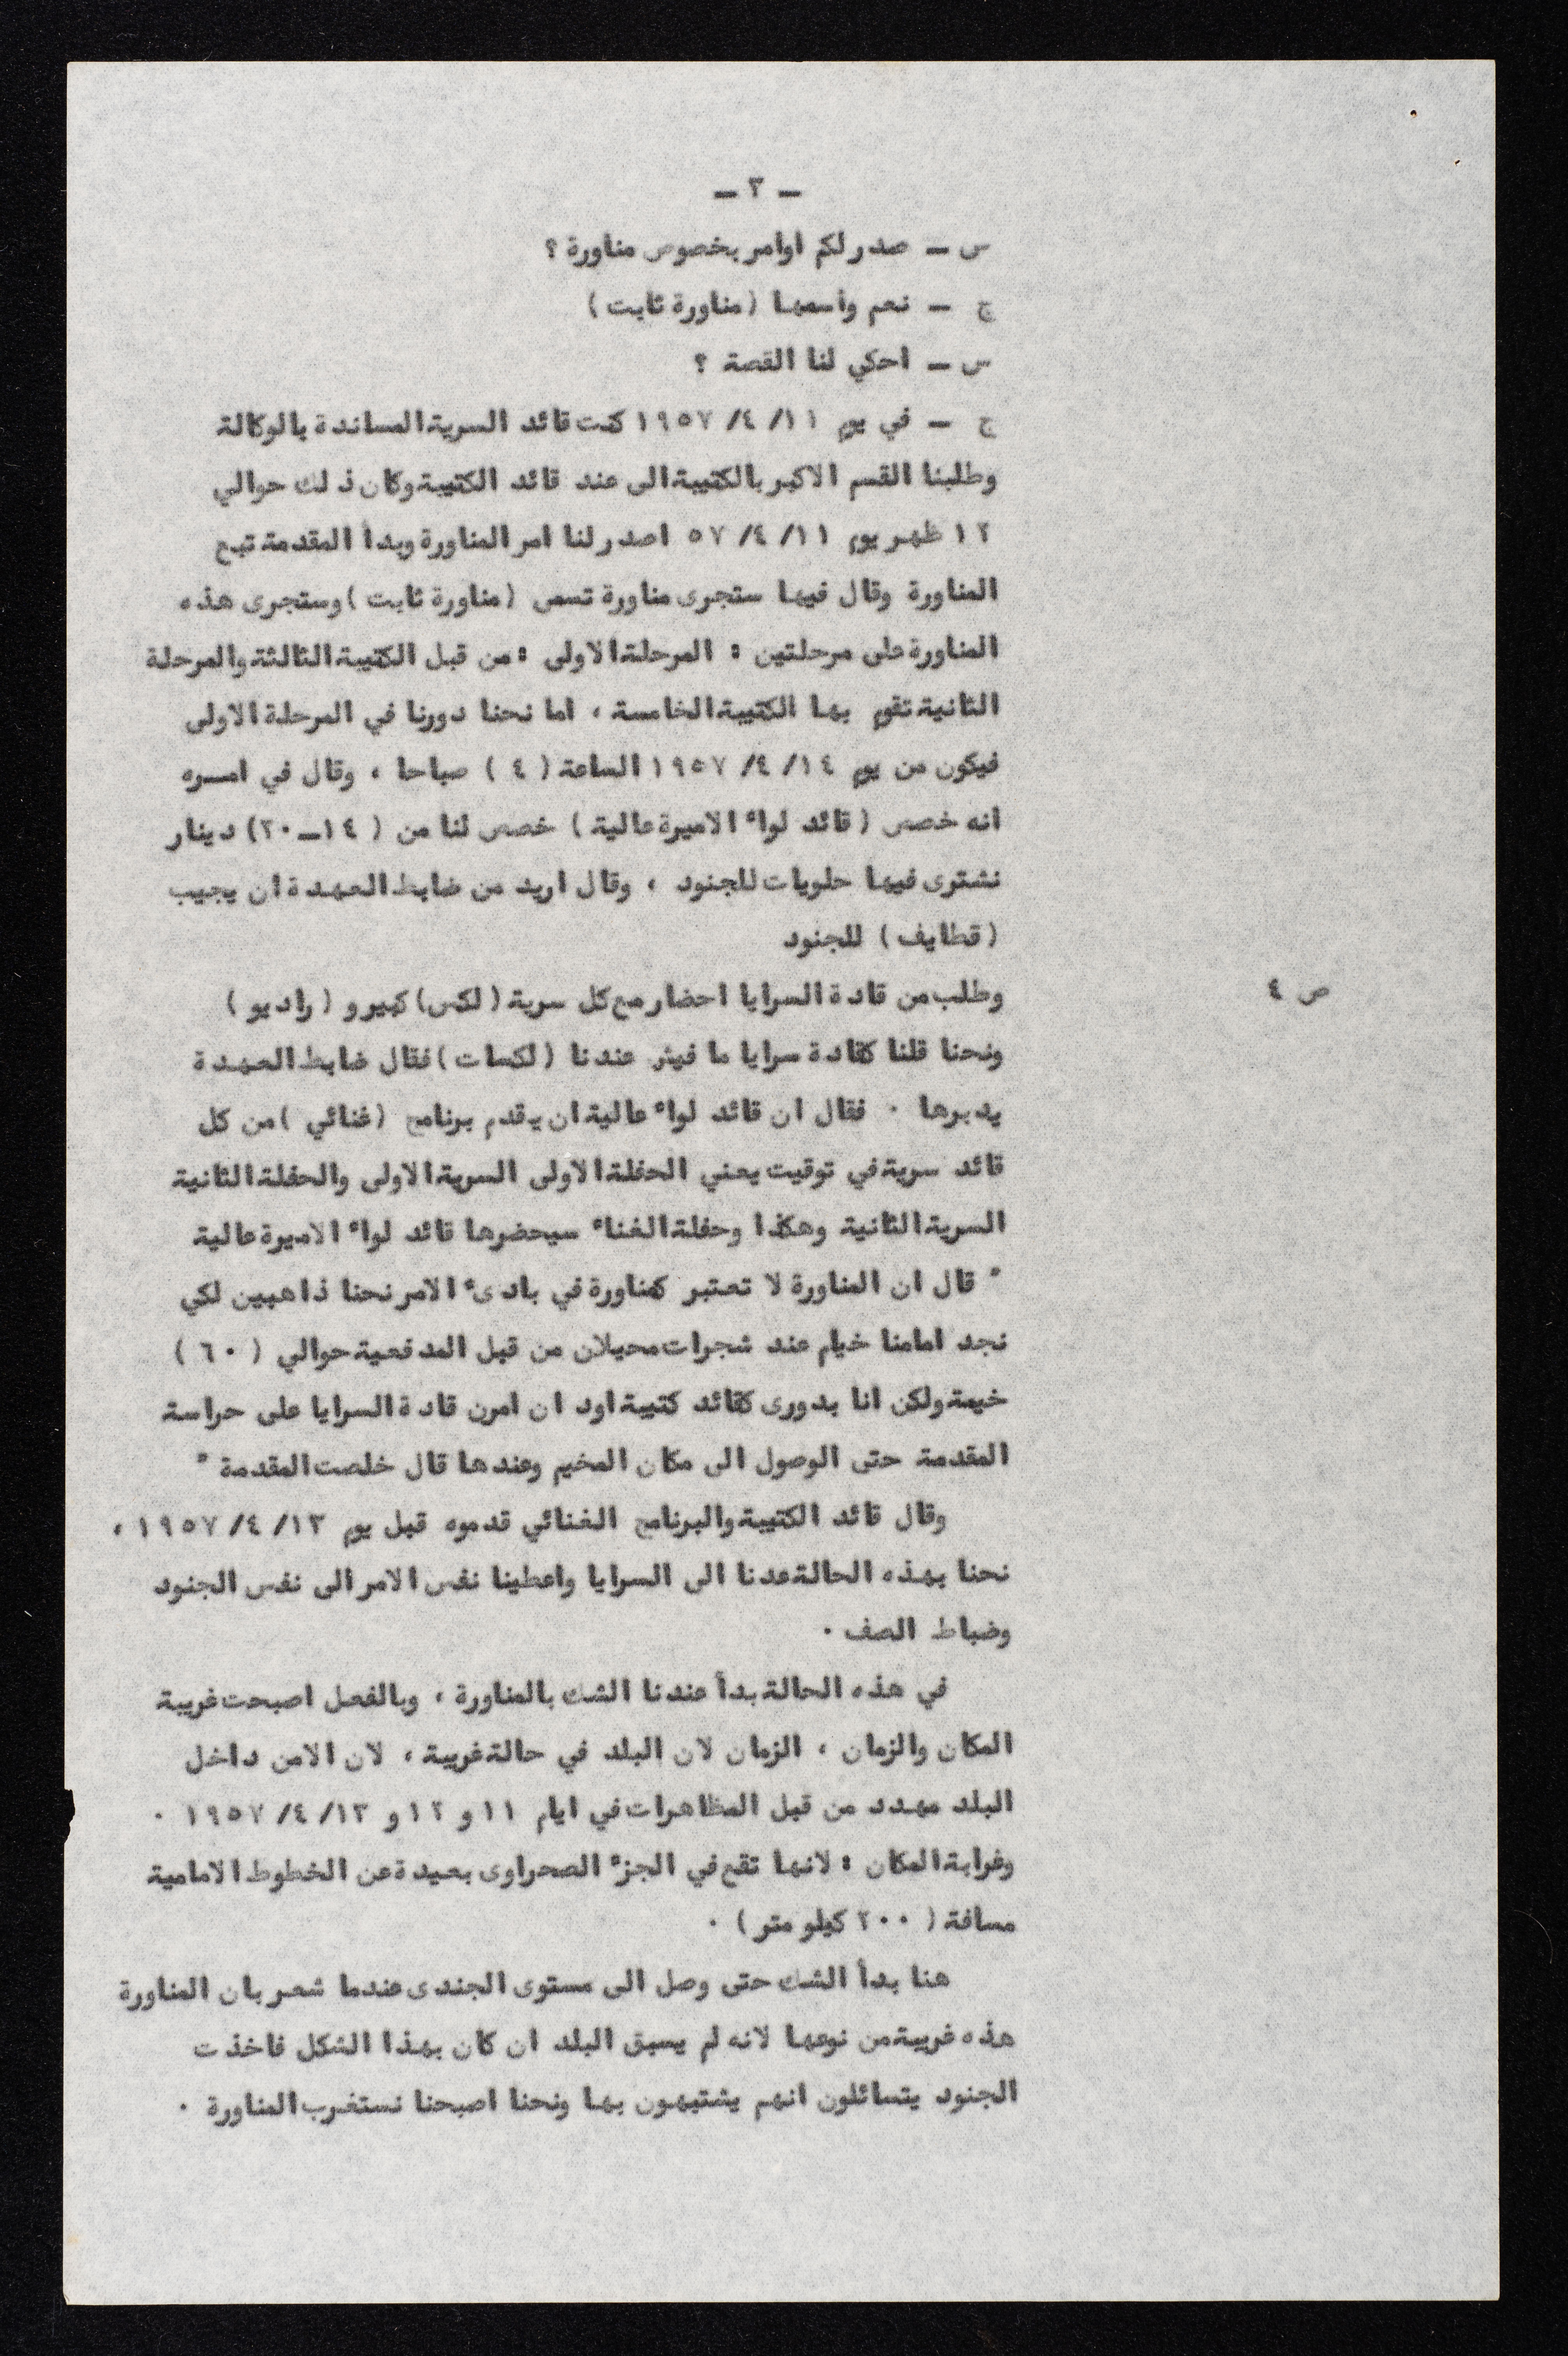 — ٣ —
س — صدر لكم اوامر بخصوص مناورة ؟
ج — نعم واسمها (مناورة ثابت)
س — احكي لنا القصة ؟
ج — في يوم ١١/ ٤/ ١٩٥٧ كنت قائد السرية المساندة بالوكالة
وطلبنا القسم الاكبر بالكتيبة الى عند قائد الكتيبة وكان ذلك حوالي
١٢ ظهر يوم ١١/ ٤/ ٥٧ اصدر لنا امر المناورة وبدأ المقدمة تبع
المناورة وقال فيها ستجرى مناورة تسمى (مناورة ثابت) وستجرى هذه
المناورة على مرحلتين : المرحلة الاولى : من قبل الكتيبة الثالثة والمرحلة
الثانية تقوم بها الكتيبة الخامسة ، اما نحنا دورنا في المرحلة الاولى
فيكون من يوم ١٤/ ٤/ ١٩٥٧ الساعة ( ٤ ) صباحا ، وقال في امره
انه خصص (قائد لواء الاميرة عالية) خصص لنا من ( ١٤—٢٠) دينار
نشترى فيها حلويات للجنود ، وقال اريد من ضابط العهدة ان يجيب
(قطايف) للجنود
ص ٤
وطلب من قادة السرايا احضار مع كل سرية (لكس) كبير و (راديو)
ونحنا قلنا كقادة سرايا ما فيش عندنا (لكسات) فقال ضابط العهدة
يدبرها . فقال ان قائد لواء عالية ان يقدم برنامج (غنائي) من كل
قائد سرية في توقيت يعني الحفلة الاولى السرية الاولى والحفلة الثانية
السرية الثانية وهكذا وحفلة الغناء سيحضرها قائد لواء الاميرة عالية
" قال ان المناورة لا تعتبر كمناورة في بادىء الامر نحنا ذاهبين لكي
نجد امامنا خيام عند شجرات محيلان من قبل المدفعية حوالي ( ٦٠ )
خيمة ولكن انا بدورى كقائد كتيبة اود ان امرن قادة السرايا على حراسة
المقدمة حتى الوصول الى مكان المخيم وعندها قال خلصت المقدمة "
وقال قائد الكتيبة والبرنامج الغنائي قدموه قبل يوم ١٣/ ٤/ ١٩٥٧ ،
نحنا بهذه الحالة عدنا الى السرايا واعطينا نفس الامر الى نفس الجنود
وضباط الصف .
في هذه الحالة بدأ عندنا الشك بالمناورة ، وبالفعل اصبحت غريبة
المكان والزمان ، الزمان لان البلد في حالة غريبة ، لان الامن داخل
البلد مهدد من قبل المظاهرات في ايام ١١ و ١٢ و ١٣/ ٤/ ١٩٥٧ .
وغرابة المكان : لانها تقع في الجزء الصحراوى بعيدة عن الخطوط الامامية
مسافة ( ٢٠٠ كيلو متر) .
هنا بدأ الشك حتى وصل الى مستوى الجندى عندما شعر بان المناورة
هذه غريبة من نوعها لانه لم يسبق البلد ان كان بهذا الشكل فاخذت
الجنود يتسائلون انهم يشتبهون بها ونحنا اصبحنا نستغرب المناورة .